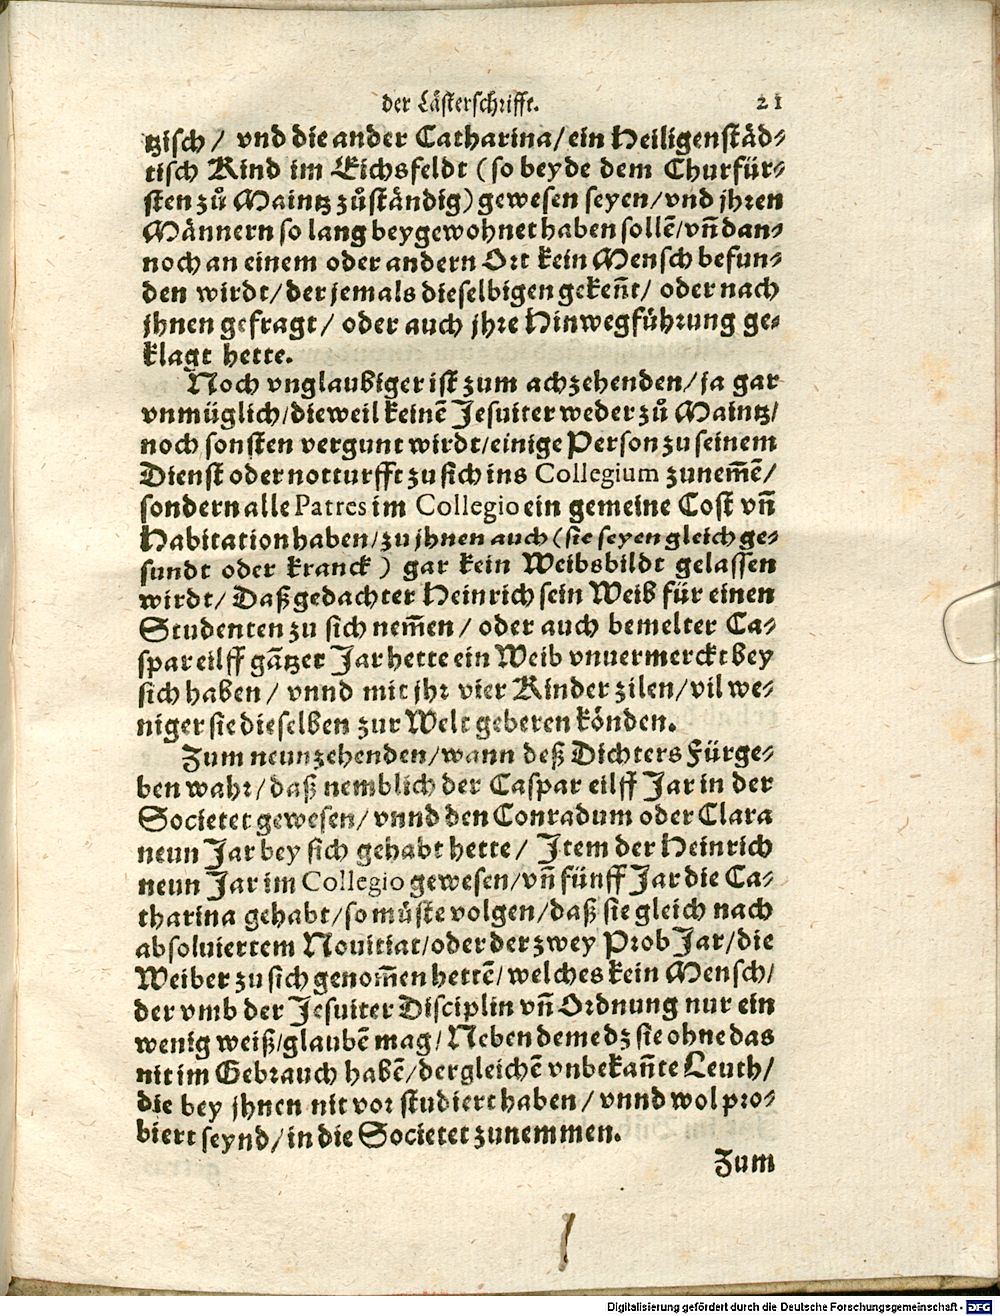 der Lästerschrifft. 21
tzisch / vnd die ander Catharina/ ein Heiligenstäd-
tisch Kind im Eichsfeldt (so beyde dem Churfür-
sten zů Maintz zůständig) gewesen seyen/ vnd jhren
Männern so lang beygewohnet haben sollē/ vñ dan-
noch an einem oder andern Ort kein Mensch befun-
den wirdt/ der jemals dieselbigen gekeñt/ oder nach
jhnen gefragt/ oder auch jhre Hinwegführung ge-
klagt hette.
Noch vnglaubiger ist zum achzehenden/ ja gar
vnmüglich/ dieweil keinē Jesuiter weder zů Maintz/
noch sonsten vergunt wirdt/ einige Person zu seinem
Dienst oder notturfft zu sich ins Collegium zunem̄ē/
sondern alle Patres im Collegio ein gemeine Cost vñ
Habitation haben/ zu jhnen auch (sie seyen gleich ge-
sundt oder kranck) gar kein Weibsbildt gelassen
wirdt/ Daß gedachter Heinrich sein Weib für einen
Studenten zu sich nem̄en/ oder auch bemelter Ca-
spar eilff gātzer Jar hette ein Weib vnuermerckt bey
sich haben/ vnnd mit jhr vier Kinder zilen/ vil we-
niger sie dieselben zur Welt geberen könden.
Zum neunzehenden/ wann deß Dichters Fürge-
ben wahr/ daß nemblich der Caspar eilff Jar in der
Societet gewesen/ vnnd den Conradum oder Clara
neun Jar bey sich gehabt hette/ Item der Heinrich
neun Jar im Collegio gewesen/ vñ fünff Jar die Ca-
tharina gehabt/ so müste volgen/ daß sie gleich nach
absoluiertem Nouitiat/ oder der zwey Prob Jar/ die
Weiber zu sich genom̄en hettē/ welches kein Mensch/
der vmb der Jesuiter Disciplin vñ Ordnung nur ein
wenig weiß/ glaubē mag/ Neben deme dz sie ohne das
nit im Gebrauch habē/ dergleichē vnbekañte Leuth/
die bey jhnen nit vor studiert haben/ vnnd wol pro-
biert seynd/ in die Societet zunemmen.
Zum
Digitalisierung gefördert durch die Deutsche Forschungsgemeinschaft - DFG